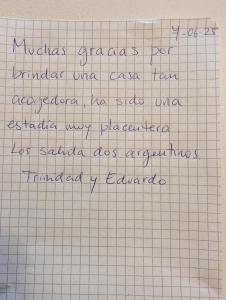 7-06-25
Muchas gracias por
brindar una casa tan
acogedora, ha sido una
estadía muy placentera
Los saluda dos argentinos.
Trinidad y Eduardo